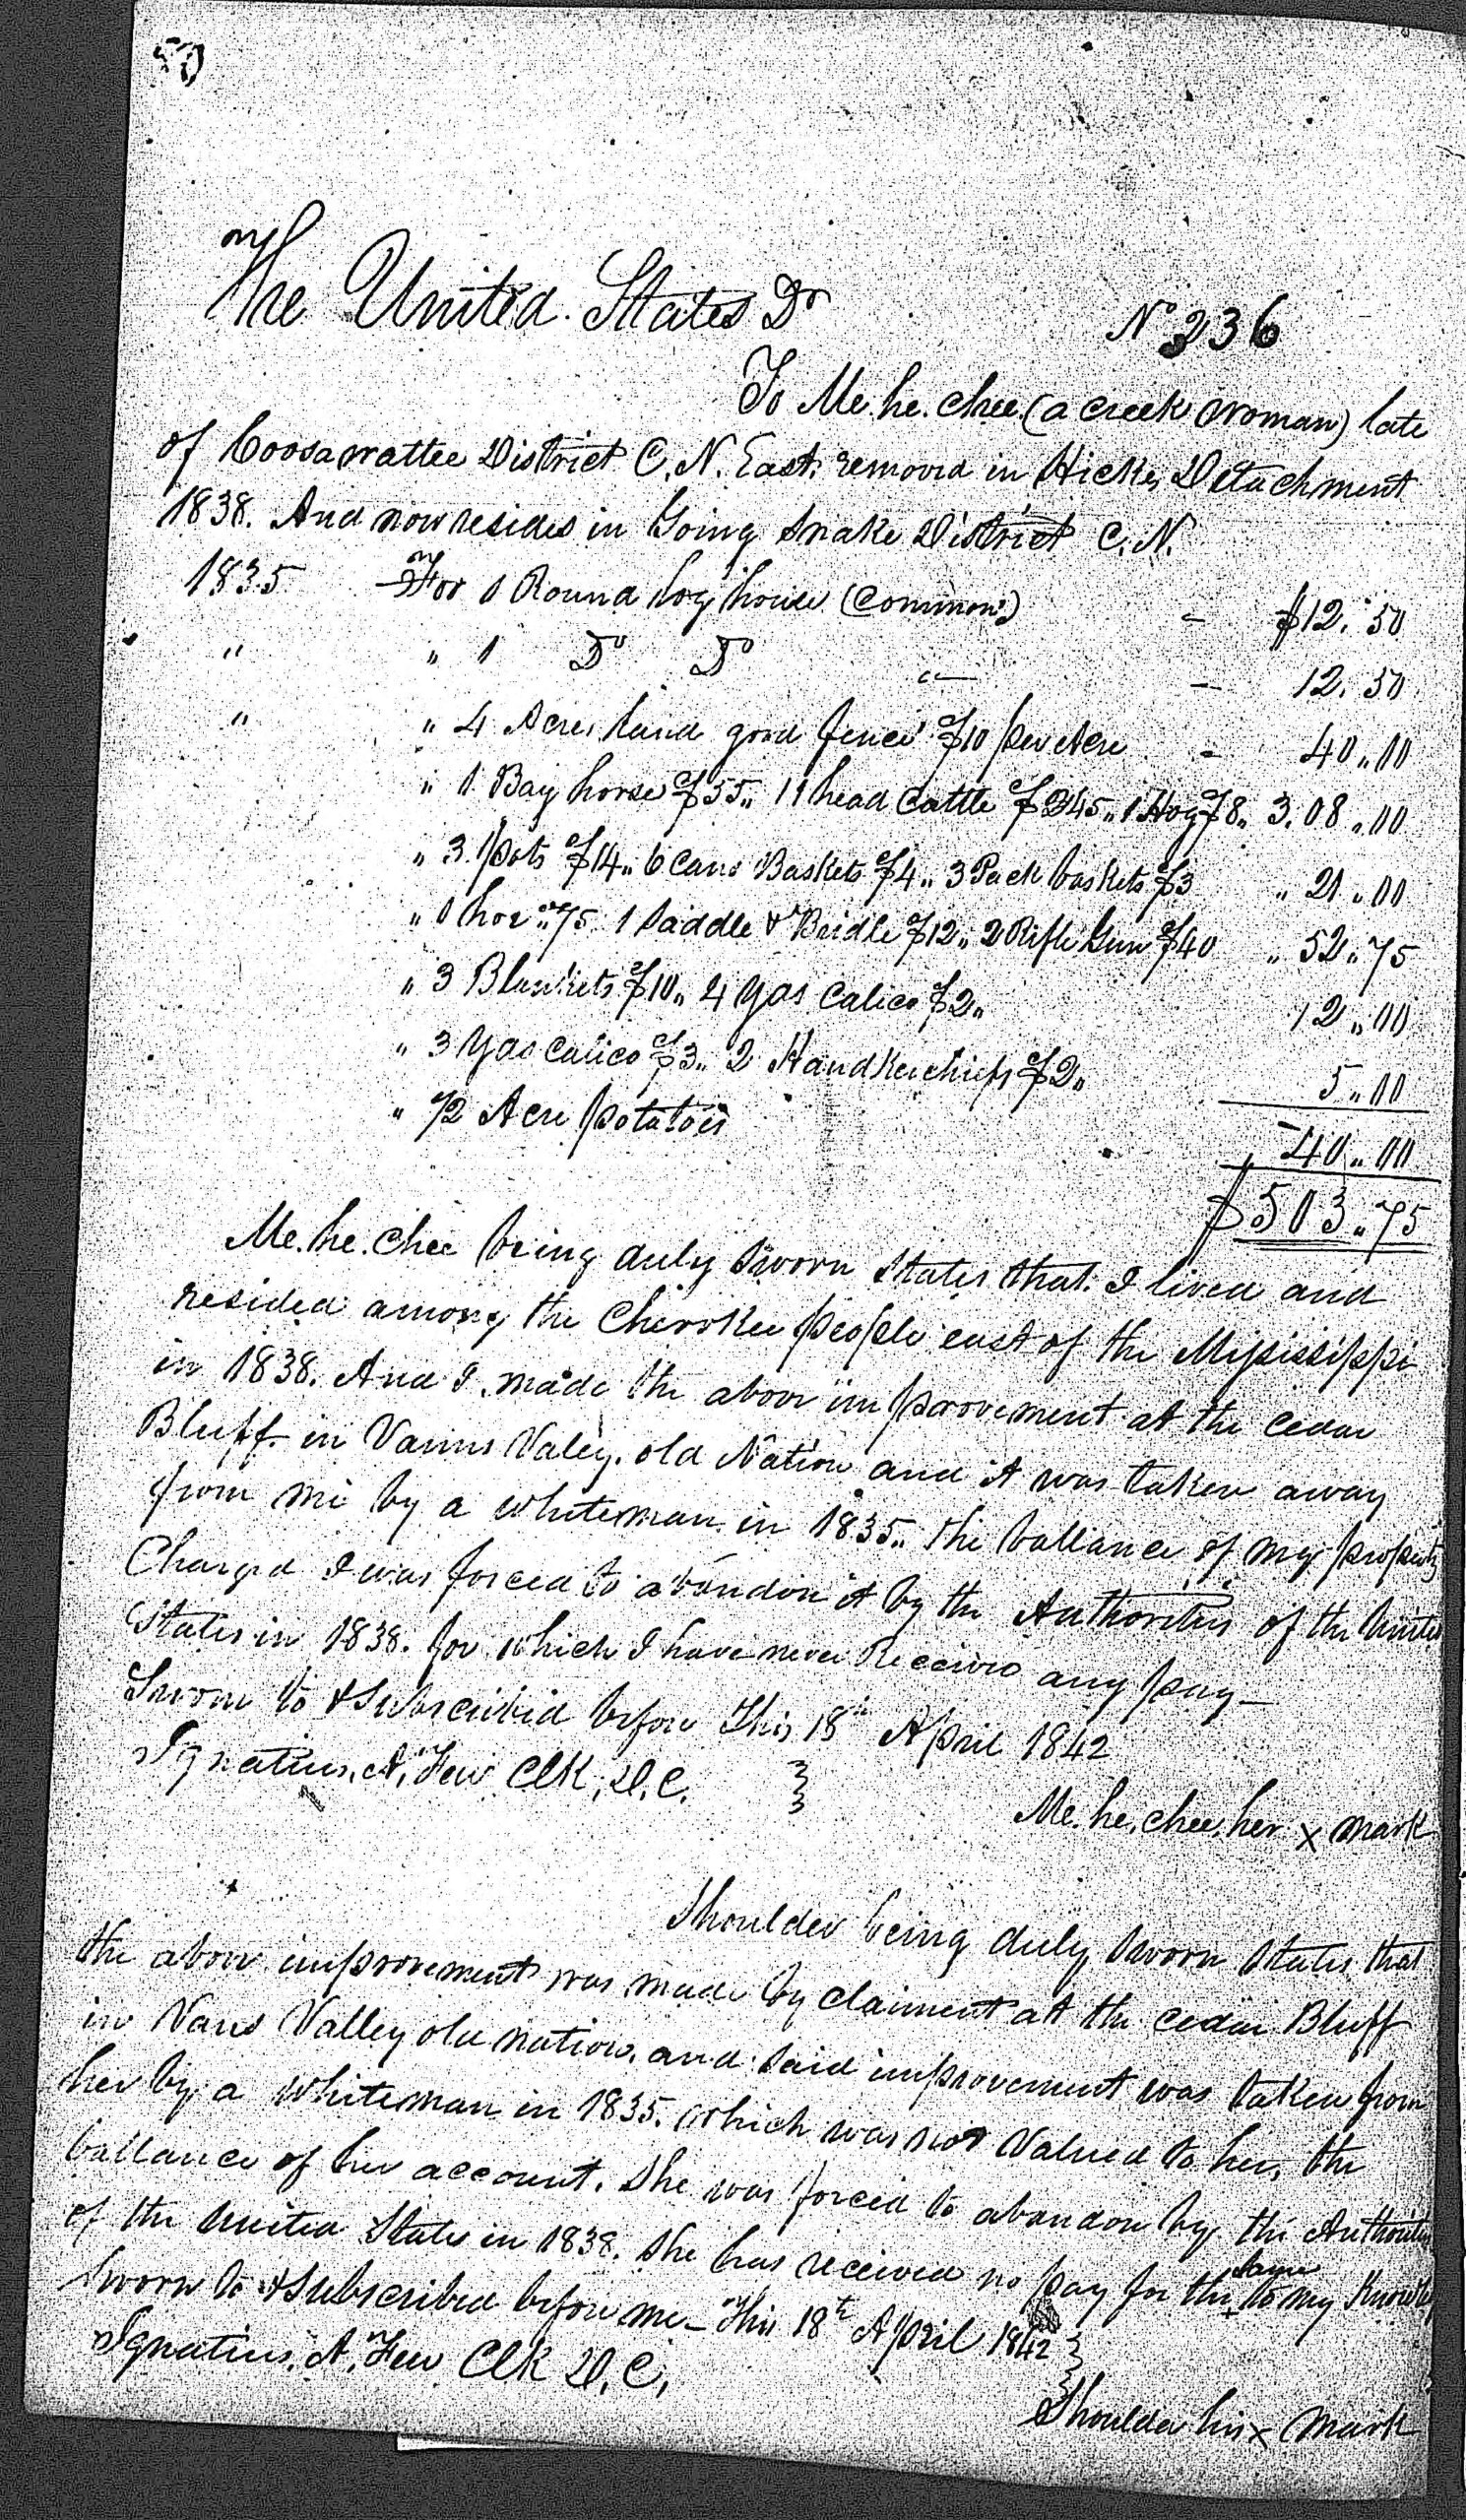 The United States Dr
No 236
To Me.he.chee (a creek woman) late
of Coosawattee District C. N. East. removed in Hicks Detachment
1838. And now resides in Going Snake District C. N.
1835 For 1 Round log house (common) - $12.50
" " 1 Do Do " - 12.50
" " 4 Acres land good fence $10 per Acre - 40.00
" 1 Bay horse $55.. 11 head Cattle $245.. 1 Hog $8.. 3.08.00
" 3 pots $14.. 6 Cane Baskets $4.. 3 Pack baskets $3 " 21.00
" 1 hoe ..75 1 Saddle & Bridle $12.. 2 Rifle Gun $40 " 52.75
" 3 Blankets $10.. 4 yds Calico $2.. 12.00
" 3 yds Calico $3.. 2 Handkerchiefs $2.. 5.00
" 1/2 Acre potatoes 40.00
$503.75
Me.he.chee being duly sworn states that I lived and
resided among the Cherokee people east of the Mississippi
in 1838. And I made the above improvement at the cedar
Bluff in Vanns Valey. old Nation and it was taken away
from me by a whiteman in 1835.. the ballance of my property
Charged I was forced to abandon it by the Authorities of the United
States in 1838. for which I have never Received any pay-
Sworn to & Subscribed before This 18th April 1842
Ignatius. A. Few Clk. D. C.
Me.he.chee. her x mark
Shoulder being duly sworn states that
the above improvement was made by claiment at the cedar Bluff
in Vans Valley old nation. and said improvement was taken from
her by a whiteman in 1835. which was not valued to her, the
ballance of her account. She was forced to abandon by the Authorities
of the United States in 1838. She has received no pay for the same to my
Sworn to & Subscribed before me- This 18th April 1842
Ignatius. A. Few Clk D. C.
Shoulder his x mark